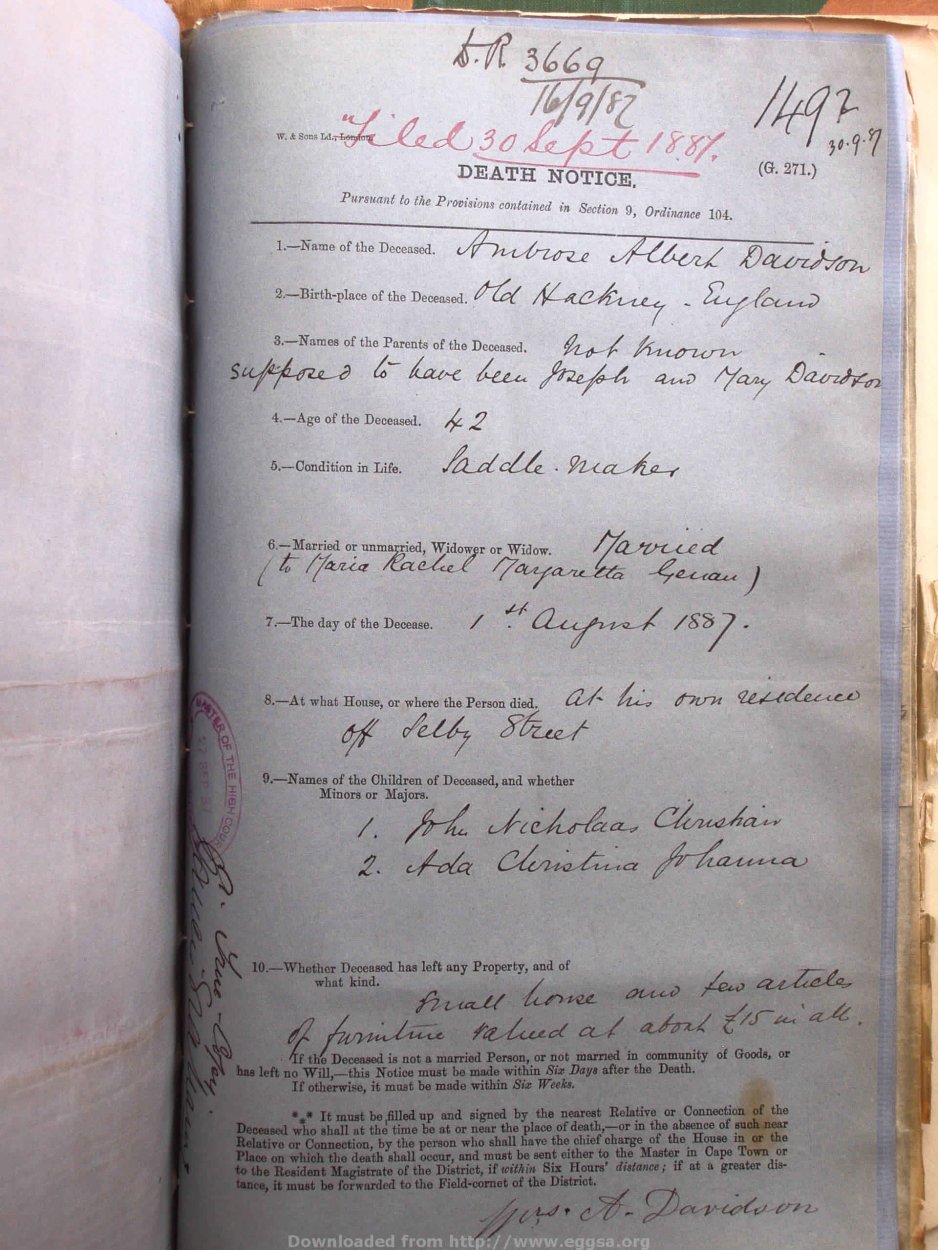 D.R. 3669
16/9/87
1492
30.9.87
W. & Sons Ld., London
"Filed 30 Sept 1887.
(G. 271.)
DEATH NOTICE,
Pursuant to the Provisions contained in Section 9, Ordinance 104.
1.—Name of the Deceased. Ambrose Albert Davidson
2.—Birth-place of the Deceased. Old Hackney - England
3.—Names of the Parents of the Deceased. Not Known
supposed to have been Joseph and Mary Davidson
4.—Age of the Deceased. 42
5.—Condition in Life. Saddle-maker
6.—Married or unmarried, Widower or Widow. Married
(to Maria Rachel Margaretta)
7.—The day of the Decease. 1st August 1887.
8.—At what House, or where the Person died. At his own residence
off Selby Street
9.—Names of the Children of Deceased, and whether
Minors or Majors.
1. John Nicholaas Christian
2. Ada Christina Johanna
10.—Whether Deceased has left any Property, and of
what kind.
Small house and few articles
of furniture valued at about £15 in all.
If the Deceased is not a married Person, or not married in community of Goods, or
has left no Will,—this Notice must be made within Six Days after the Death.
If otherwise, it must be made within Six Weeks.
*** It must be filled up and signed by the nearest Relative or Connection of the
Deceased who shall at the time be at or near the place of death,—or in the absence of such near
Relative or Connection, by the person who shall have the chief charge of the House in or the
Place on which the death shall occur, and must be sent either to the Master in Cape Town or
to the Resident Magistrate of the District, if within Six Hours' distance; if at a greater dis-
tance, it must be forwarded to the Field-cornet of the District.
Mrs. A. Davidson
MASTER OF THE HIGH COURT
27 SEP
True Copy.
Downloaded from http://www.eggsa.org